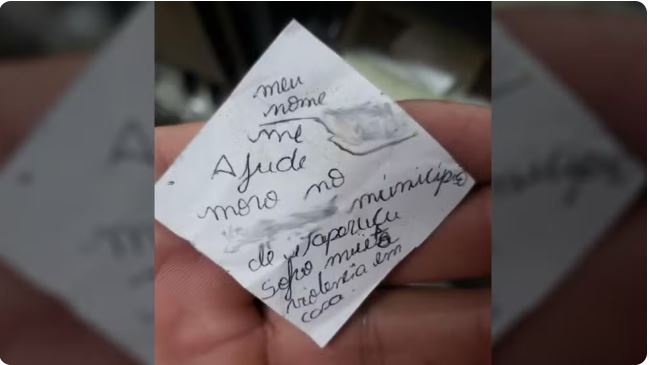 meu
nome
me
Ajude
moro no
município
de Itaporucu
sofro muita
violencia em
casa.